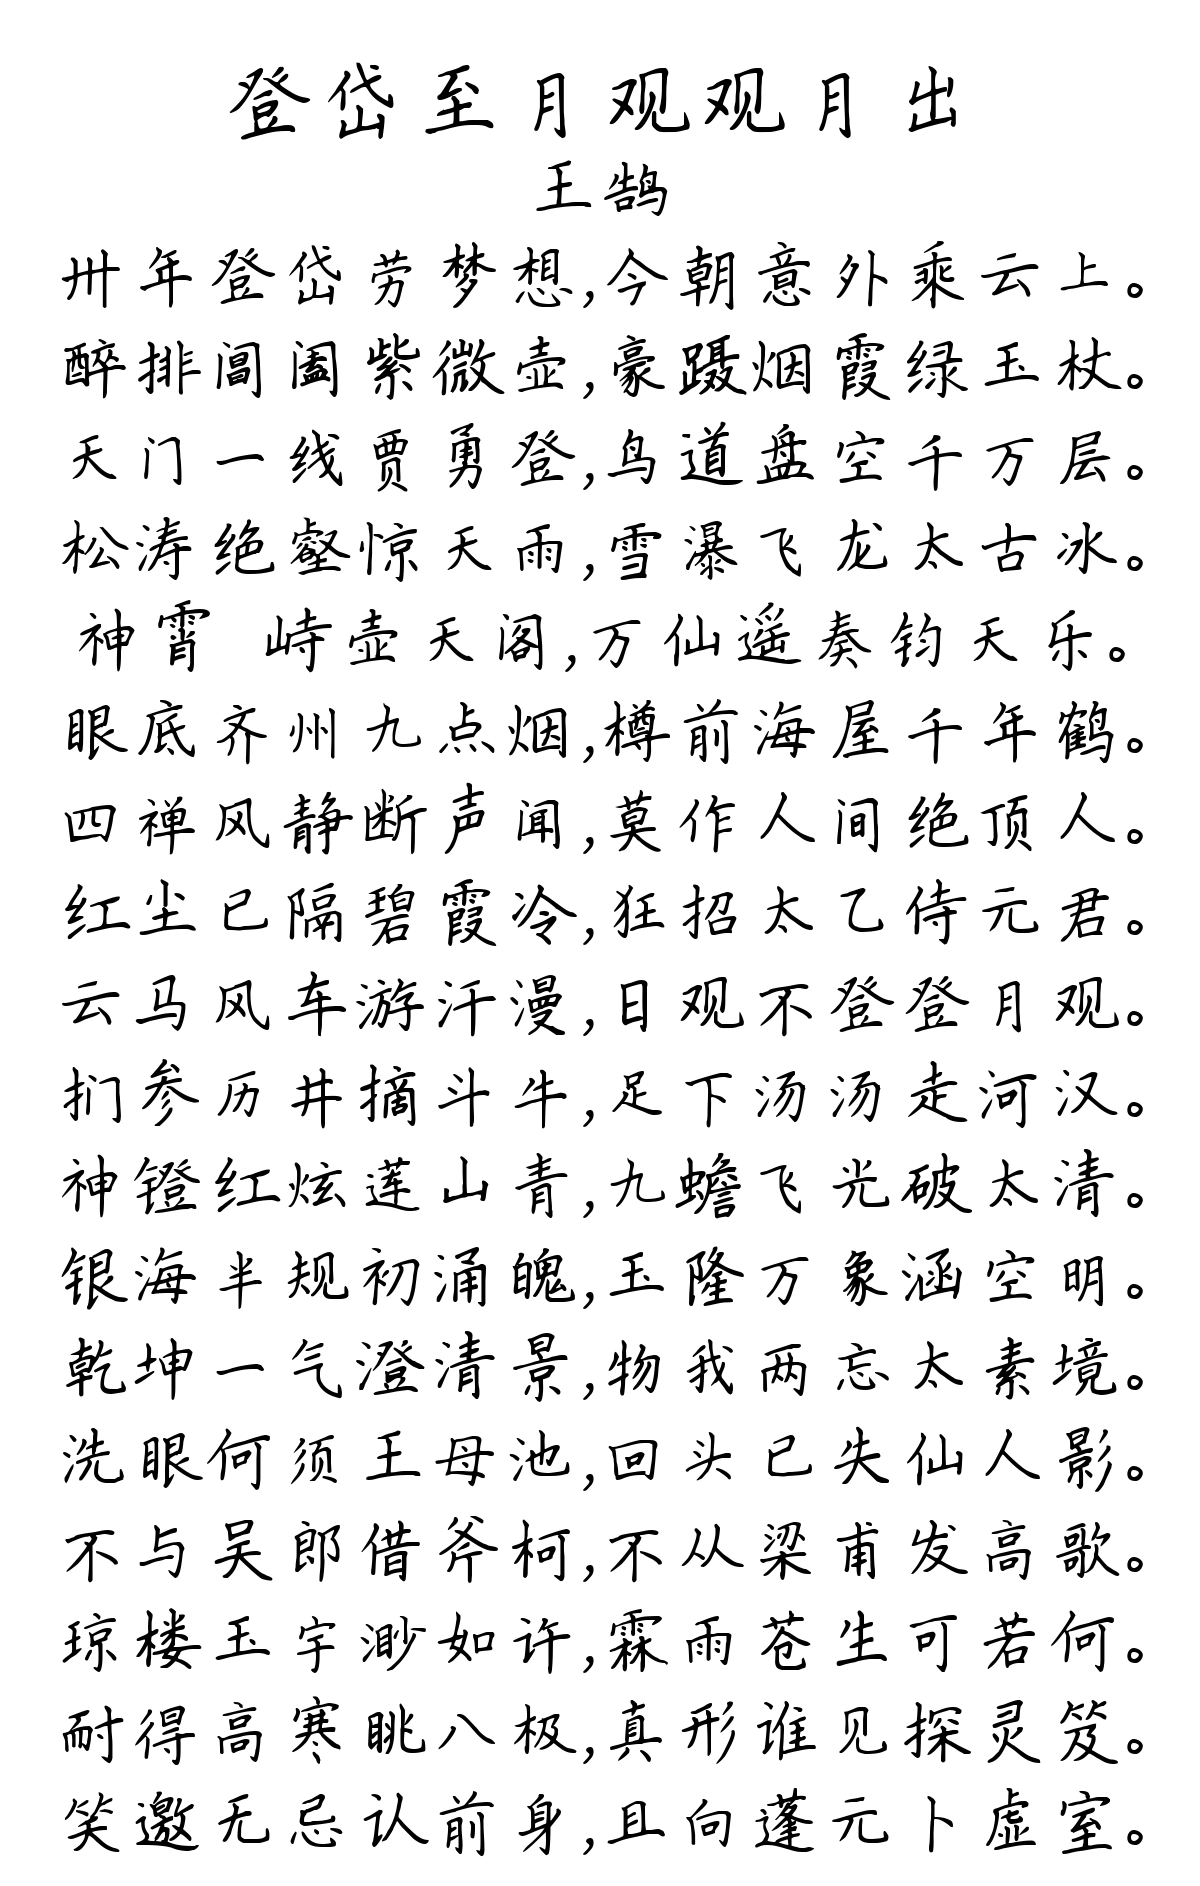 登岱至月观观月出
王鹄
卅年登岱劳梦想,今朝意外乘云上。
醉排阊阖紫微壶,豪蹑烟霞绿玉杖。
天门一线贾勇登,鸟道盘空千万层。
松涛绝壑惊天雨,雪瀑飞龙太古冰。
神霄 峙壶天阁,万仙遥奏钧天乐。
眼底齐州九点烟,樽前海屋千年鹤。
四禅风静断声闻,莫作人间绝顶人。
红尘已隔碧霞冷,狂招太乙侍元君。
云马风车游汗漫,日观不登登月观。
扪参历井摘斗牛,足下汤汤走河汉。
神镫红炫莲山青,九蟾飞光破太清。
银海半规初涌魄,玉隆万象涵空明。
乾坤一气澄清景,物我两忘太素境。
洗眼何须王母池,回头已失仙人影。
不与吴郎借斧柯,不从梁甫发高歌。
琼楼玉宇渺如许,霖雨苍生可若何。
耐得高寒眺八极,真形谁见探灵笈。
笑邀无忌认前身,且向蓬元卜虚室。